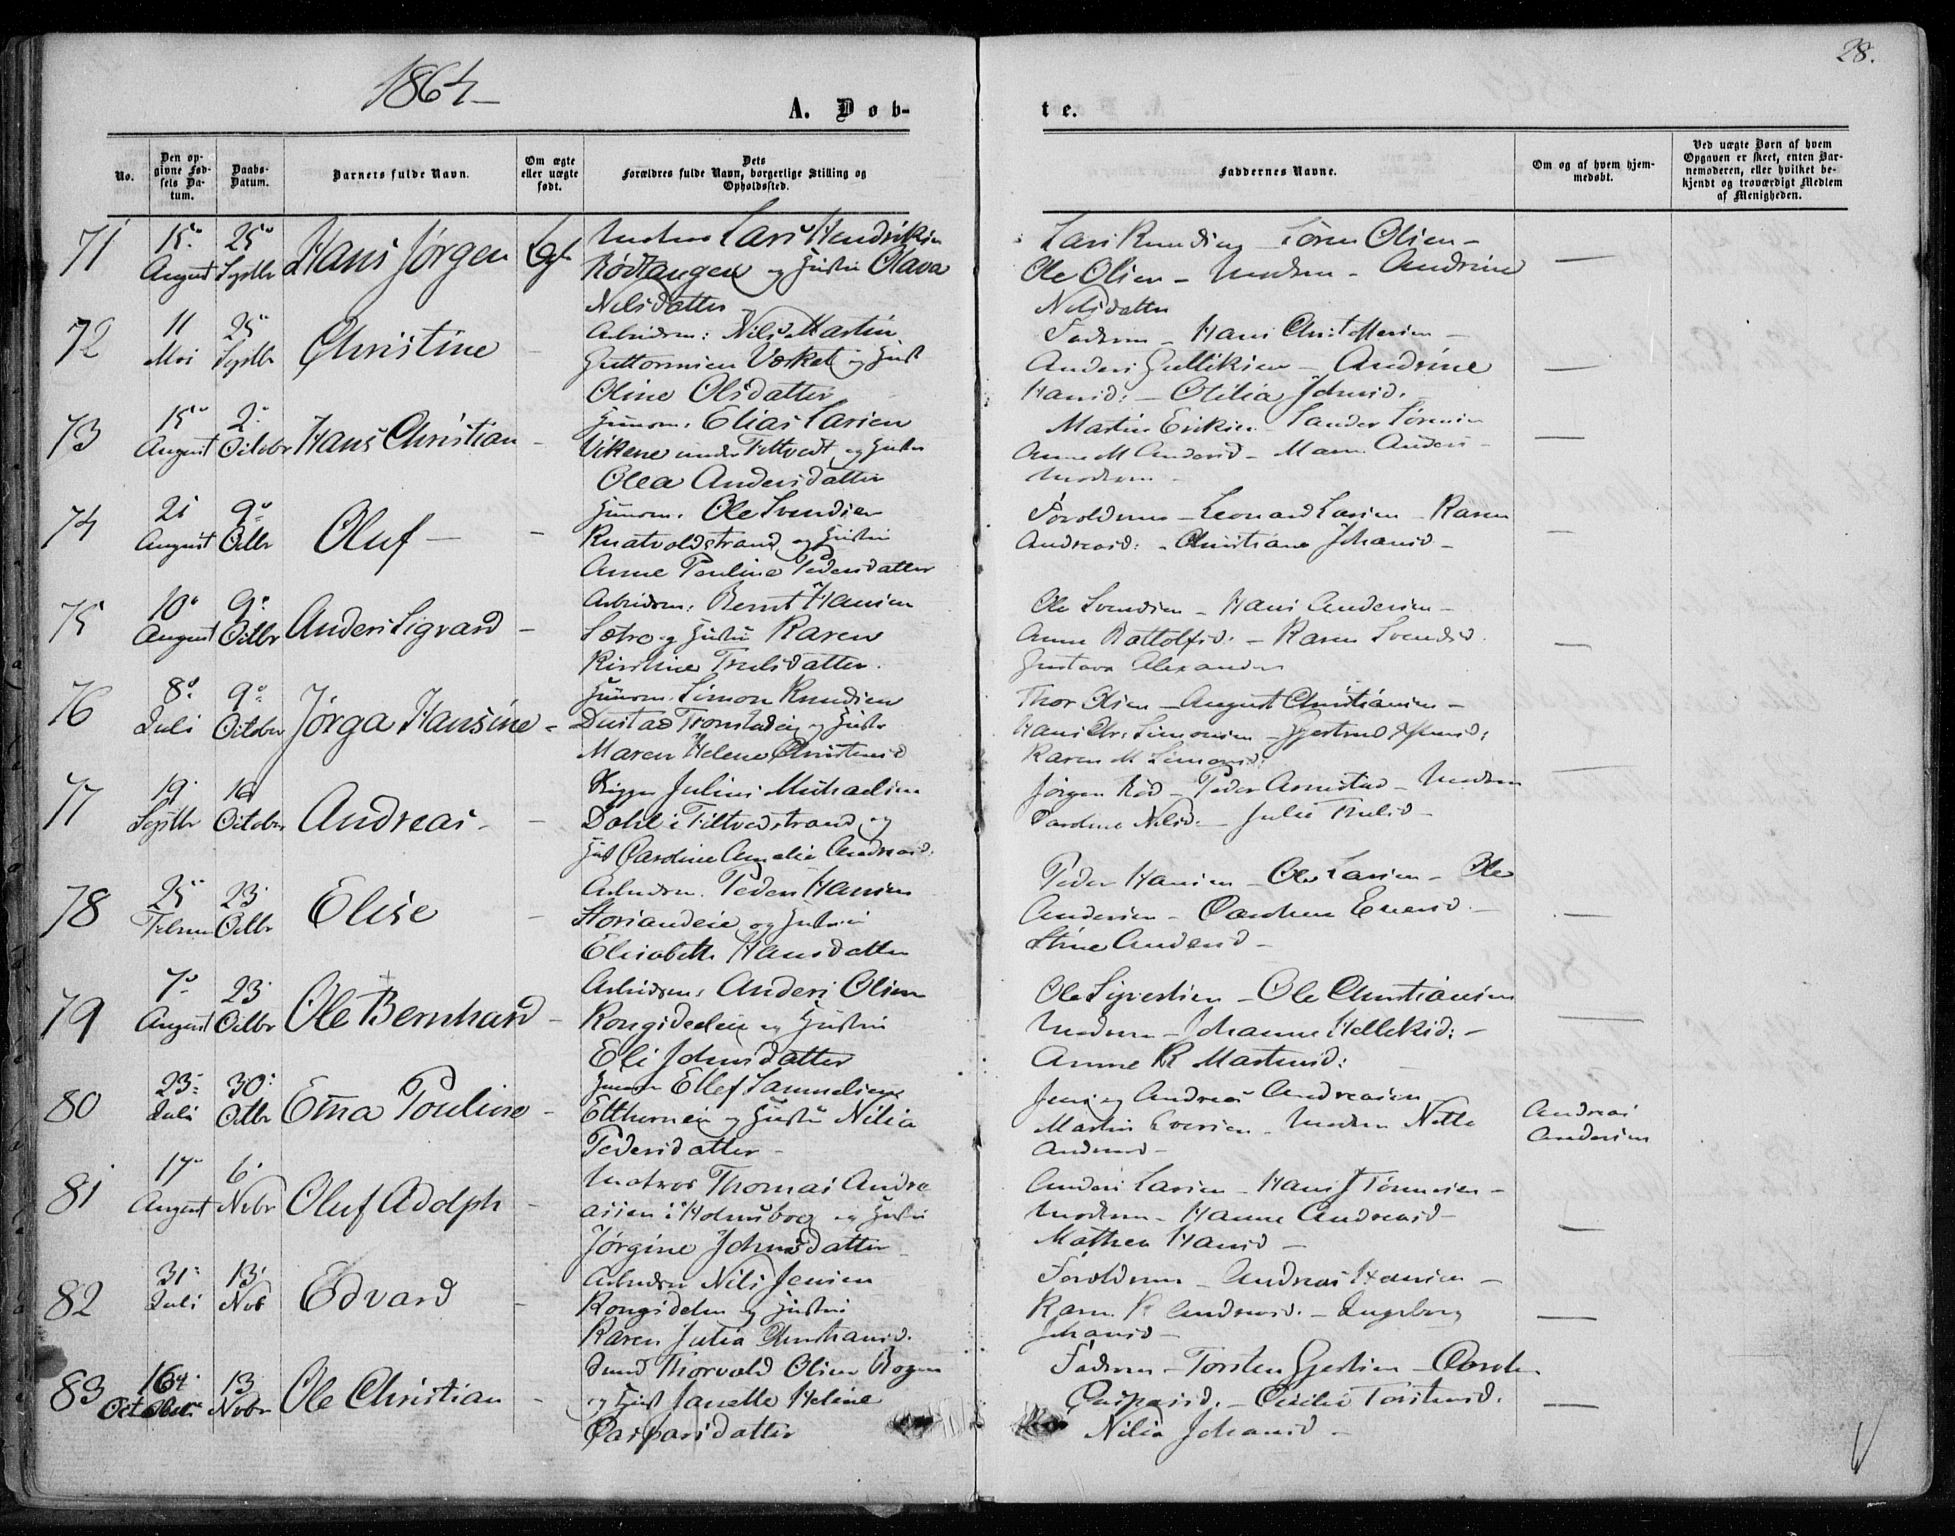 1864
28.
A. Døb-
te.
No.
Den opgivne Fødsels Datum.
Daabs-Datum.
Barnets fulde Navn.
Om ægte eller uægte født.
Dets Forældres fulde Navn, borgerlige Stilling og Opholdssted.
Faddernes Navne.
Om og af hvem hjemmedøbt.
Ved uægte Børn af hvem Opgaven er skeet, enten Barnemoderen, eller hvilket bekjendt og troværdigt Medlem af Menigheden.
71 15 August 25 Septbr Hans Jørgen Lars Hendriksen
Rødtangen og Hustru Olava
Nilsdatter
Lars Knudsen - Søren Olsen -
Ole Olsen - Modren - Andrine
Nilsdatter
72 11 Mai 25 Septbr Christine - Arbeidsm: Nils Martin
Guttormsen Værket og Hust
Oline Olsdatter
Fadren - Hans Christoffersen -
Anders Gulliksen - Andrine
Hansd: - Otilia Johnsd.
73 15 August 2 October Hans Christian - Huusm. Elias Larsen
Vikene under Filtvedt og Hustru
Olea Andersdatter
Martin Eriksen - Sander Sørensen
Anne M Andersd - Maren Anders -
Modren -
74 21 August 9 Octbr Oluf - - Huusm. Ole Svendsen
Knatvoldstrand og Hustru
Anne Pauline Pedersdatter
Forældrene - Leonard Larsen - Karen
Andreasd: - Christiane Johansd -
75 10 August 9 Octbr Anders Sigvard - Arbeidsm: Bernt Hansen
Sætre og Hustru Karen
Kirstine Trulsdatter.
Ole Svendsen - Hans Andersen -
Anne - Karen Svendsd.
Gustava
76 8 Juli 9 October Jørga Hansine - Huusm. Simon Knudsen
Tronstadeig og Hustr
Maren Helene Christensd
Thor Olsen - August Christiansen -
Hans Chr. Simonsen - Gjertrud
Karen M Simonsd.
77 19 Septbr 16 October Andreas - - Julius Michaelsen
Dahl i Filtvedstrand og
Hust Caroline Amalie Andreasd.
Jørgen Rød - Peder - Modren
Pauline Nilsd. - Julie Trulsd -
78 25 23 Octbr Elise - Arbeidsm. Peder Hansen
Storsandeie og Hustru
Elisabeth Hansdatter
Peder Hansen - Ole Larsen - Ole
Andersen - Caroline -
Stine Andersd -
79 7 August 23 Octbr Ole Bernhard - Arbeidsm: Anders Olsen
og Hustru
Eli Johnsdatter
Ole Syvertsen - Ole Christiansen
Modren - Johanne -
Anne K Martinsd:
80 23 Juli 30 Octbr Ema Pouline - Huusm Ellef Samuelsen
og Hustr Nilia
Pedersdatter -
Jens og Andreas Andreasen
Martin - Modren Nette
Andersd -
Andreas
Andersen
81 17 August 6 Novbr Oluf Adolph - Matros Thomas Andre
asen i Holmsbog og Hustru
Jørgine Johnsdatter -
Anders Larsen - Hans J Tønnesen -
Modren - Hanne Andreasd -
Mathea Hansd -
82 31 Juli 13 Nov Edvard - Arbeidsm Nils Jensen
og Hustru
Karen Julia Christiansd.
Forældrene - Andreas Hansen -
Karen K Andreasd. - Ingeborg
Johansd -
83 16 October 13 Novbr Ole Christian - Thorvald Olsen Bogen
og Hust Janette Helene
Caspersdatter
Fadren - Torsten Gjertsen -
Caspersd. - Cicilie Torstensd.
Nilia Johansd -